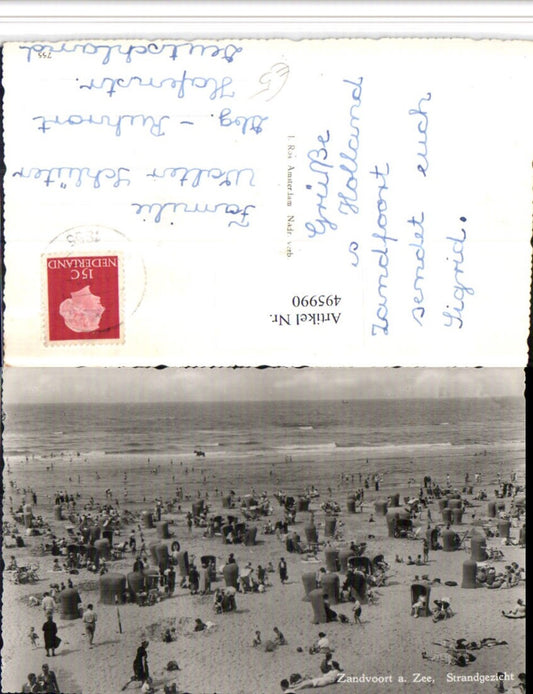 Grüße
is Holland
Zandfoort
sendet euch
Sigrid.
I. R.si Amsterdam Nadr. verb
Familie
Walter Schlüter
Dbg. - Ruhrort
Hafenstr.
Deutschland
755
15C
NEDERLAND
Artikel Nr.
495990
Zandvoort a. Zee, Strandgezicht